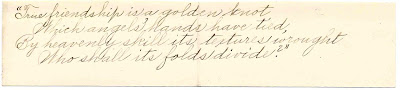 "True friendship is a golden knot,
Which angels' hands have tied,
By heavenly skill its textures wrought
Who shall its folds divide?"